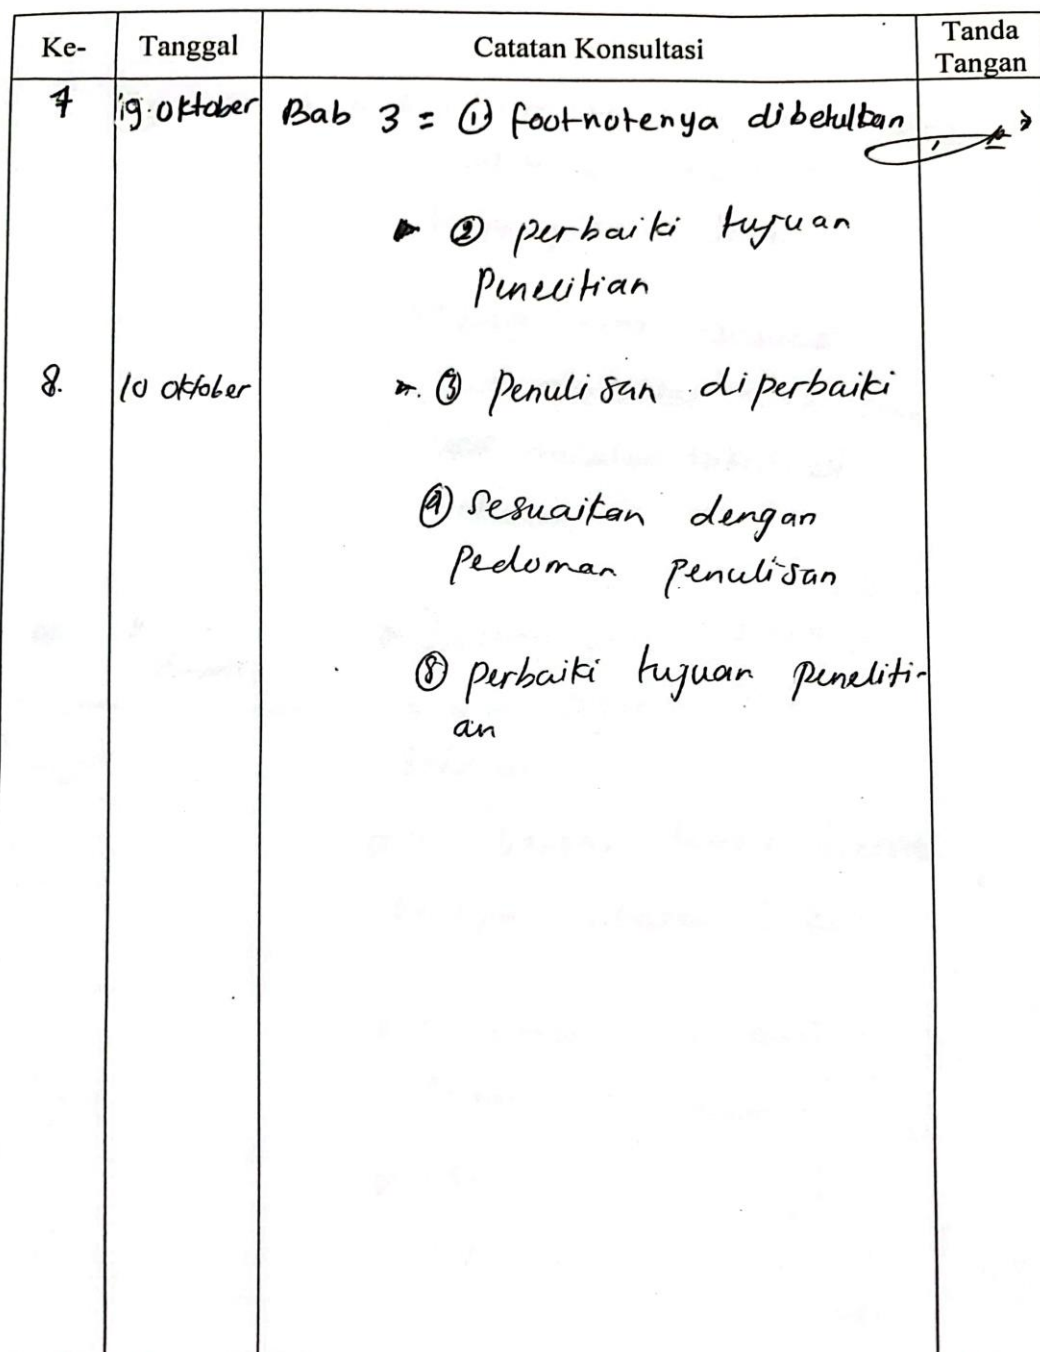 Ke- Tanggal Catatan Konsultasi Tanda Tangan
7 19. oktober Bab 3 = ① footnotenya dibetulkan
② perbaiki tujuan
Penelitian
8. 10 oktober ③ Penulisan diperbaiki
④ Sesuaikan dengan
Pedoman Penulisan
⑧ perbaiki tujuan peneliti-
an